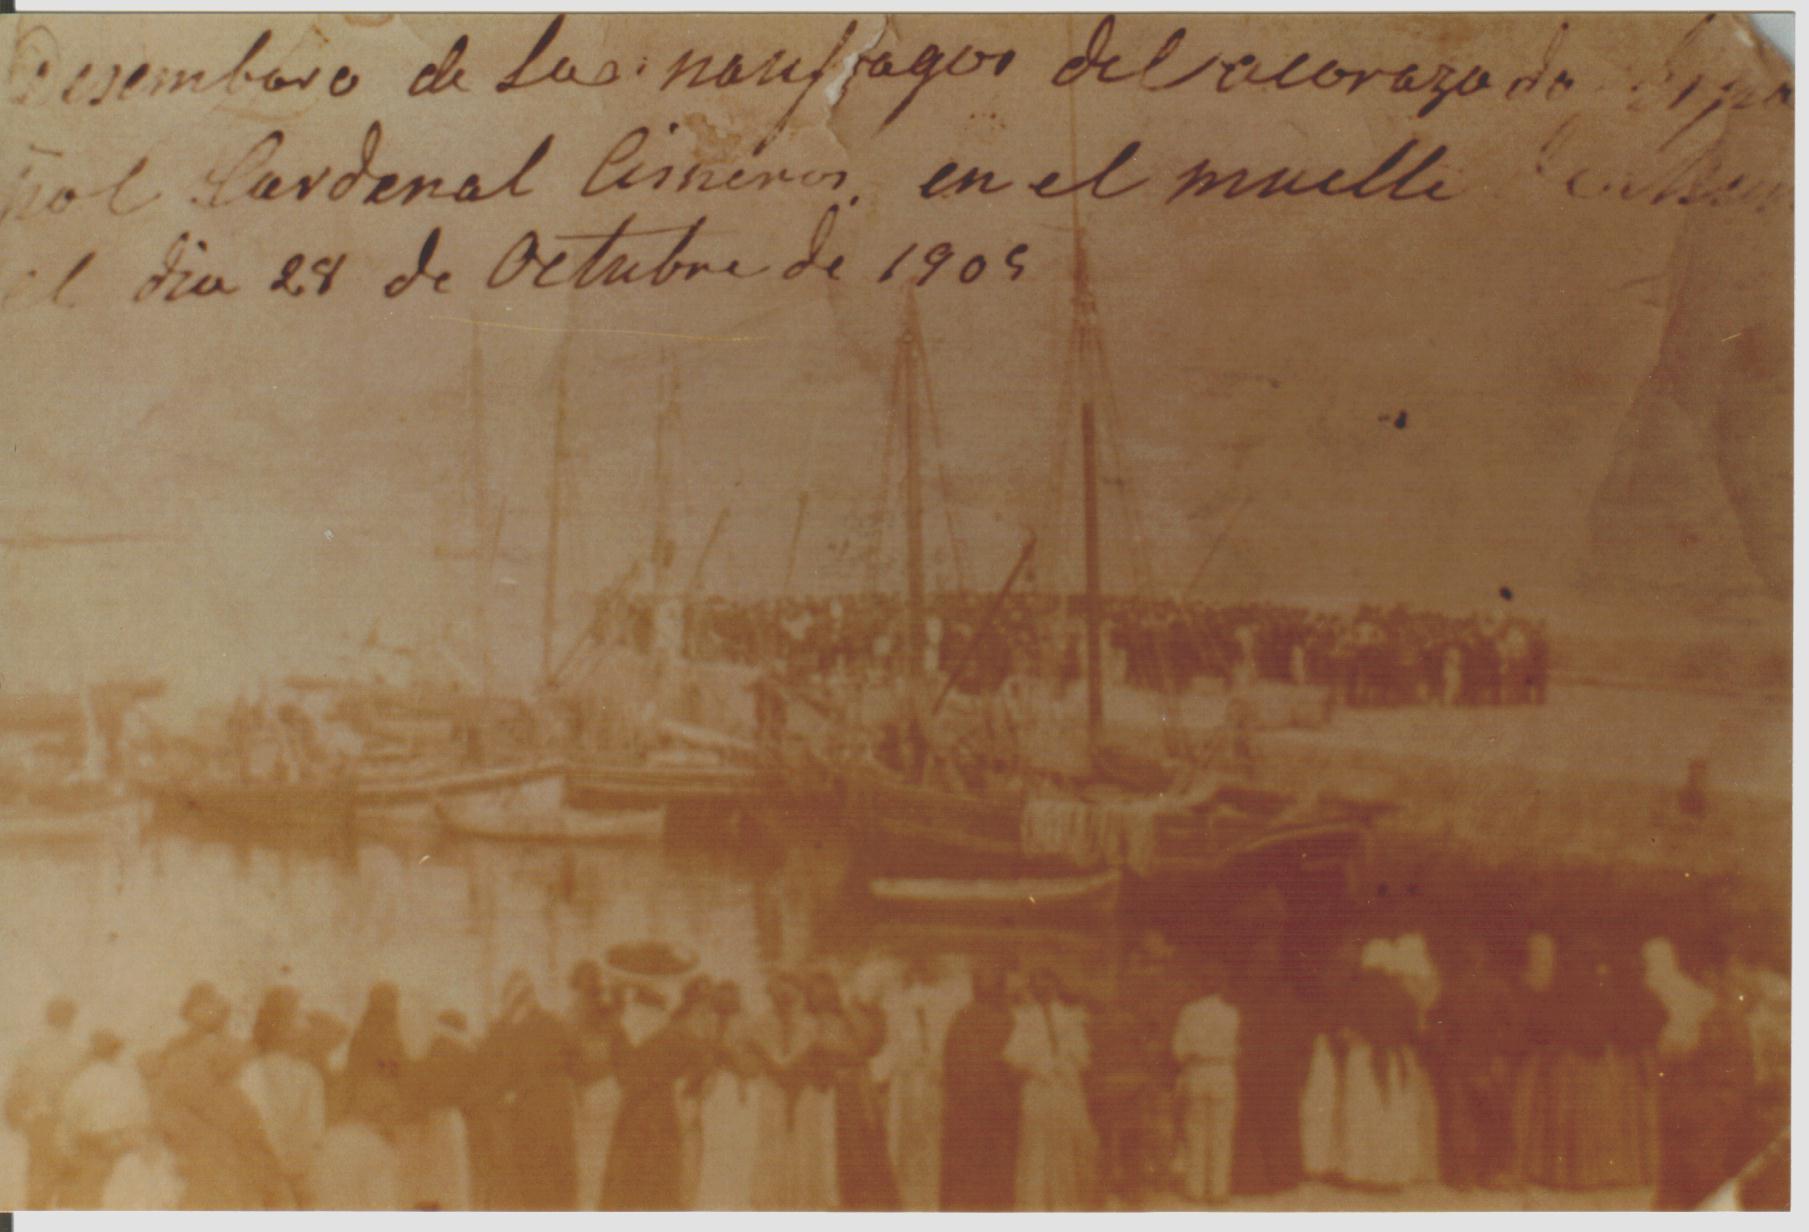 Desembaro de Los naufragos del acorazado Espa
ñol Cardenal Cisneros, en el muelle
el dia 28 de Octubre de 1905